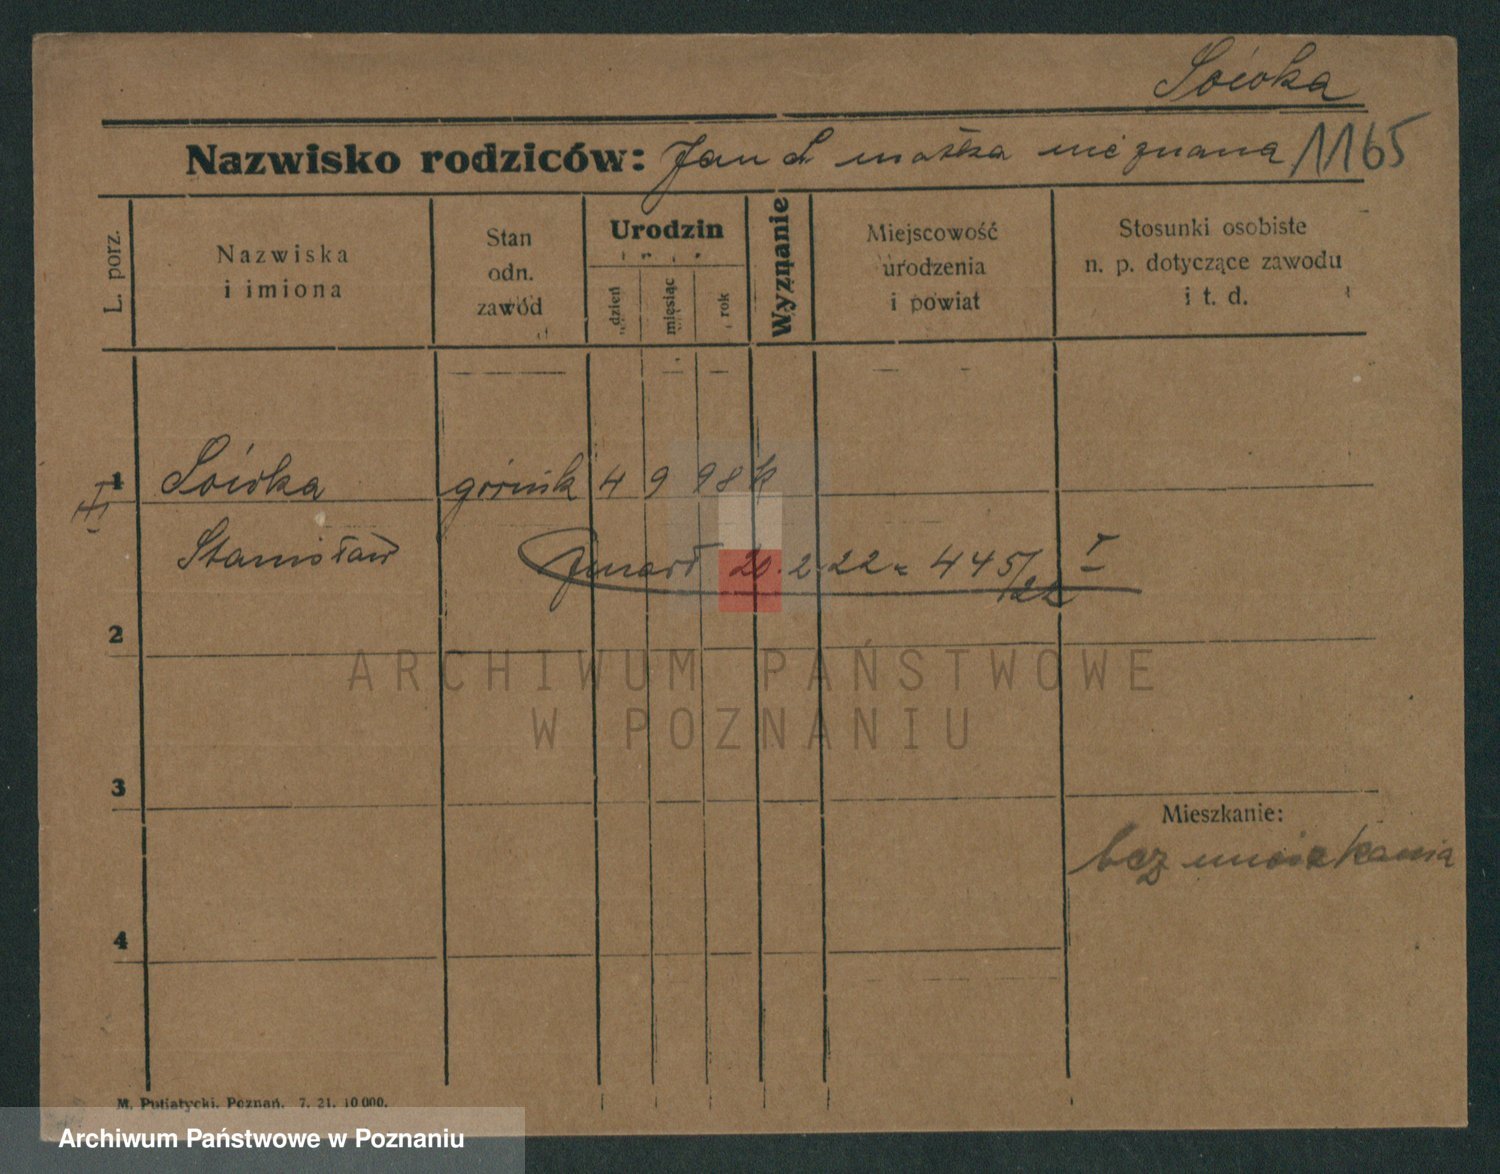 Soióka
Nazwisko rodziców: Jan S matka nieznana 1165
L. porz.
Nazwiska
i imiona
Stan
odn.
zawód
Urodzin
dzień
miesiąc
rok
Wyznanie
Miejscowość
urodzenia
i powiat
Stosunki osobiste
n. p. dotyczące zawodu
i t. d.
1 górnik 4 9 98 k
Stanisław
zmarł 20.2.22 = 445/22 I
2
ARCHIWUM PAŃSTWOWE
W POZNANIU
3
Mieszkanie:
bez mieszkania
4
M. Putiatycki, Poznań. 7. 21. 10 000.
Archiwum Państwowe w Poznaniu